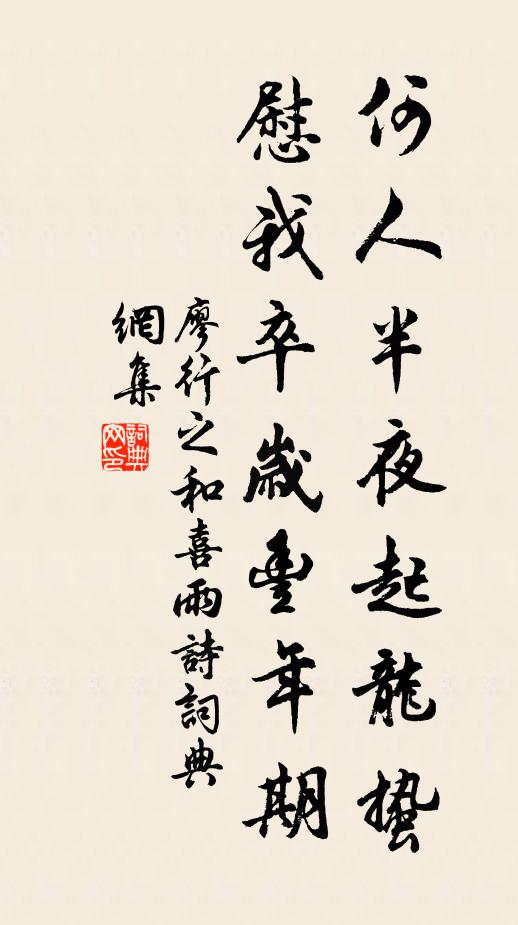 何人半夜起龍蟄
慰我卒歲豊年期
廖行之和喜雨詩詞典
網集
詞典
网印